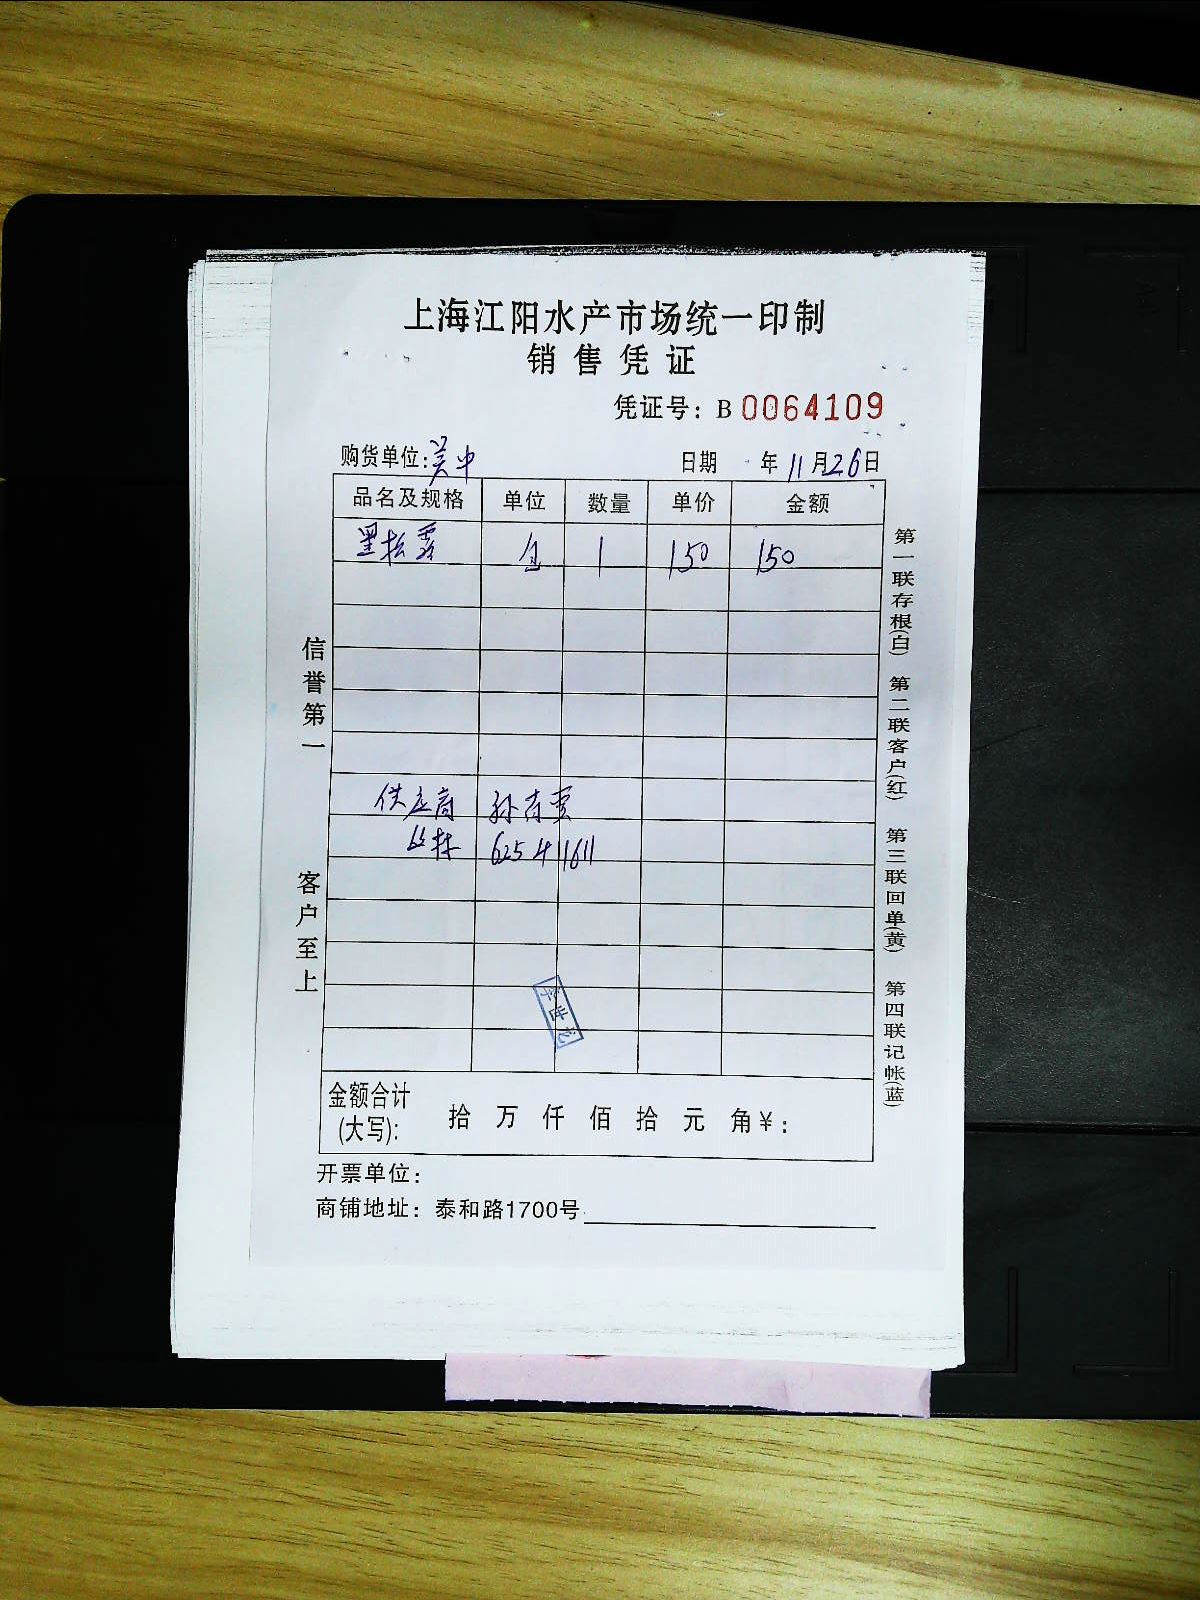 上海江阳水产市场统一印制
销售凭证
凭证号：B 0064109
购货单位：吴中
日期 年11月26日
品名及规格 单位 数量 单价 金额
黑松露 1 150 150
供应商 孙
62541611
金额合计
(大写): 拾 万 仟 佰 拾 元 角¥：
开票单位：
商铺地址：泰和路1700号
信誉第一 客户至上
第一联存根(白) 第二联客户(红) 第三联回单(黄) 第四联记帐(蓝)